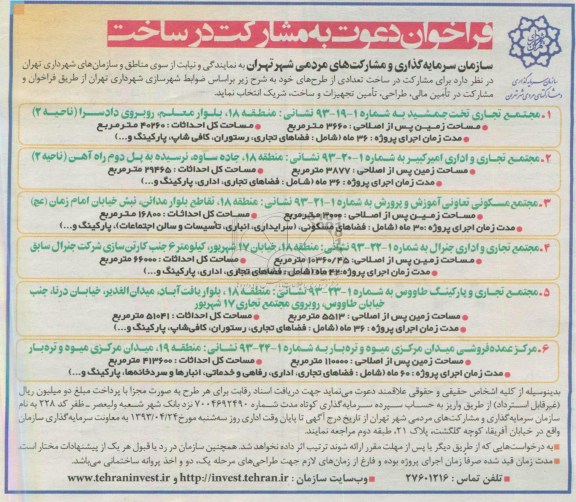 فراخوان دعوت به مشارکت در ساخت
سازمان سرمایه‌گذاری و مشارکت‌های مردمی شهر تهران به نمایندگی و نیابت از سوی مناطق و سازمان‌های شهرداری تهران
در نظر دارد برای مشارکت در ساخت تعدادی از طرح‌های خود به شرح زیر براساس ضوابط شهرسازی شهرداری تهران از طریق فراخوان و
مشارکت در تأمین مالی، طراحی، تأمین تجهیزات و ساخت، شریک انتخاب نماید.
۱. مجتمع تجاری تخت جمشید به شماره ۱-۱۹-۹۳ نشانی: منطقه ۱۸، بلوار معلم، روبروی دادسرا (ناحیه ۲)
مساحت زمین پس از اصلاحی: ۳۶۶۰ مترمربع مساحت کل احداثات: ۴۰۲۶۰ مترمربع
مدت زمان اجرای پروژه: ۳۶ ماه (شامل: فضاهای تجاری، رستوران، کافی شاپ، پارکینگ و...)
۲. مجتمع تجاری و اداری امیرکبیر به شماره ۱-۲۰-۹۳ نشانی: منطقه ۱۸، جاده ساوه، نرسیده به پل دوم راه آهن (ناحیه ۲)
مساحت زمین پس از اصلاحی: ۳۸۷۷ مترمربع مساحت کل احداثات: ۲۹۴۶۵ مترمربع
مدت زمان اجرای پروژه: ۳۶ ماه (شامل: فضاهای تجاری، اداری، پارکینگ و...)
۳. مجتمع مسکونی تعاونی آموزش و پرورش به شماره ۱-۲۱-۹۳ نشانی: منطقه ۱۸، تقاطع بلوار مدائن، نبش خیابان امام زمان (عج)
مساحت زمین پس از اصلاحی: ۳۰۰۰ مترمربع مساحت کل احداثات: ۱۶۸۰۰ مترمربع
مدت زمان اجرای پروژه: ۳۰ ماه (شامل: فضاهای مسکونی، (سرایداری، انباری، تأسیسات و سالن اجتماعات)، پارکینگ و...)
۴. مجتمع تجاری و اداری جنرال به شماره ۱-۲۲-۹۳ نشانی: منطقه ۱۸، خیابان ۱۷ شهریور، کیلومتر ۶ جنب کارتن‌سازی شرکت جنرال سابق
مساحت زمین پس از اصلاحی: ۱۰۳۶۰/۴۵ مترمربع مساحت کل احداثات: ۶۶۰۰۰ مترمربع
مدت زمان اجرای پروژه: ۴۲ ماه (شامل: فضاهای تجاری، اداری، پارکینگ و...)
۵. مجتمع تجاری و پارکینگ طاووس به شماره ۱-۲۳-۹۳ نشانی: منطقه ۱۸، بلوار یافت‌آباد، میدان الغدیر، خیابان درنا، جنب
خیابان طاووس، روبروی مجتمع تجاری ۱۷ شهریور
مساحت زمین پس از اصلاحی: ۵۵۱۳ مترمربع مساحت کل احداثات: ۵۱۰۴۱ مترمربع
مدت زمان اجرای پروژه: ۳۶ ماه (شامل: فضاهای تجاری، رستوران، کافی‌شاپ، پارکینگ و...)
۶. مرکز عمده‌فروشی میدان مرکزی میوه و تره‌بار به شماره ۱-۲۴-۹۳ نشانی: منطقه ۱۹، میدان مرکزی میوه و تره‌بار
مساحت زمین پس از اصلاحی: ۱۱۰۰۰۰ مترمربع مساحت کل احداثات: ۴۱۳۶۰۰ مترمربع
مدت زمان اجرای پروژه: ۶۰ ماه (شامل: فضاهای تجاری، اداری، رفاهی و خدماتی، انبارها و سردخانه‌ها، پارکینگ و...)
بدینوسیله از کلیه اشخاص حقیقی و حقوقی علاقمند دعوت می‌نماید جهت دریافت اسناد رقابت برای هر طرح به صورت مجزا با پرداخت مبلغ دو میلیون ریال
(غیرقابل استرداد) از طریق واریز به حساب سپرده سرمایه‌گذاری کوتاه مدت شماره ۷۰۰۴۶۹۲۴۹۰ نزد بانک شهر شعبه ولیعصر ـ ظفر کد ۲۲۸ به نام
سازمان سرمایه‌گذاری و مشارکت‌های مردمی شهر تهران از تاریخ درج آگهی تا پایان وقت اداری روز سه‌شنبه مورخ ۱۳۹۳/۰۴/۲۴ به معاونت سرمایه‌گذاری سازمان
واقع در خیابان آفریقا، کوچه گلگشت، پلاک ۲۱، طبقه دوم مراجعه نمایند.
به درخواست‌هایی که از طریق دیگر یا پس از مهلت مقرر ارائه شوند ترتیب اثر داده نخواهد شد. همچنین سازمان در رد یا قبول هر یک از پیشنهادات مختار است.
مدت زمان قید شده صرفاً زمان اجرای پروژه بوده و فارغ از زمان‌های لازم جهت طراحی‌های مرحله یک، دو و اخذ پروانه ساختمانی می‌باشد.
تلفن تماس: ۲۷۶۰۱۲۱۶ وب‌سایت سازمان: http://invest.tehran.ir و www.tehraninvest.ir